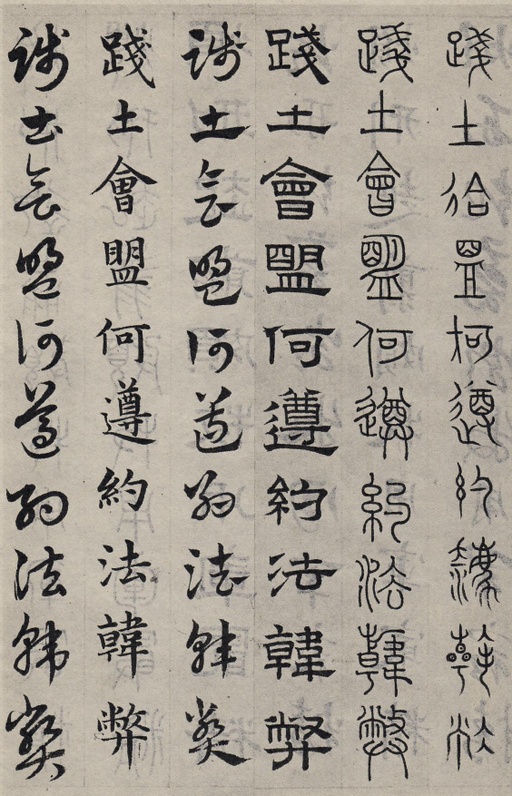 踐土會盟何遵約法韓弊
踐土會盟何遵約法韓弊
踐土會盟何遵約法韓弊
踐土會盟何遵約法韓弊
踐土會盟何遵約法韓弊
踐土會盟何遵約法韓弊